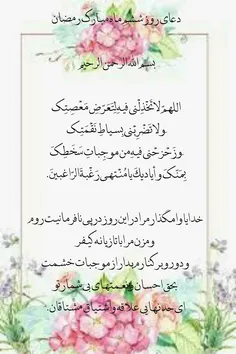 دعای روز ششم ماه مبارک رمضان
بسم الله الرحمن الرحیم
اللهمّ لا تَخْذِلْنی فیهِ لِتَعَرّضِ مَعْصِیتِکَ
ولا تَضْرِبْنی بِسیاطِ نَقْمَتِکَ
وزَحْزحْنی فیهِ من موجِباتِ سَخَطِکَ
بِمَنّکَ وأیادیکَ یا مُنْتهى رَغْبةَ الرّاغبینَ.
خدایا وامگذار مرا در این روز در پی نافرمانیت روم
ومزن مرا با تازیانه کیفر
و دور و بر کنارم بدار از موجبات خشمت
بحق احسان و نعمتهای بی شمار تو
ای حد نهایی علاقه و اشتیاق مشتاقان.